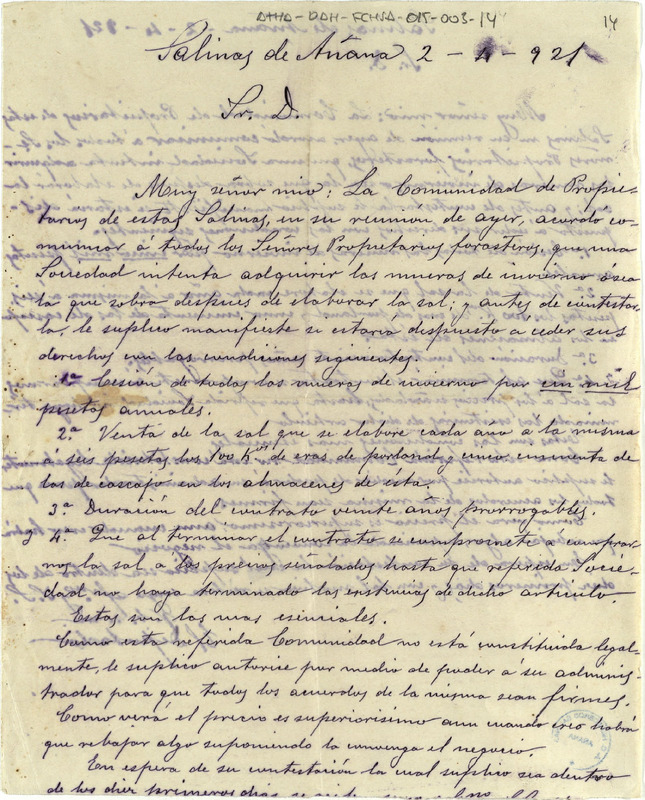 ATHA-DAH-FCHSA-015-003-14
14
Salinas de Añana 2 - 4 - 921
Sr. D.
Muy señor mio: La Comunidad de Propie-
tarios de estas Salinas, en su reunión de ayer, acordó co-
municar á todos los Señores Propietarios forasteros, que una
Sociedad intenta adquirir las mueras de invierno ó sea
la que sobra despues de elaborar la sal; y antes de contestar-
la, le suplico manifieste si estaría dispuesto á ceder sus
derechos con las condiciones siguientes.
1ª Cesión de todas las mueras de invierno por cin mil
pesetas anuales.
2.ª Venta de la sal que se elabore cada año a la misma
á seis pesetas los 100 Kos de eras de porland y cinco cincuenta de
las de cascajo en los almacenes de ésta.
3ª Duración del contrato veinte años prorrogables.
y 4ª Que al terminar el contrato se compromete á comprar-
nos la sal a los precios señalados hasta que referida Socie-
dad no haya terminado las existencias de dicho artículo.
Estas son las mas esenciales.
Como esta referida Comunidad no está constituida legal-
mente, le suplico autorice por medio de poder á su adminis-
trador para que todos los acuerdos de la misma sean firmes.
Como verá el precio es superiorísimo aun cuando creo habrá
que rebajar algo suponiendo la convenga el negocio.
En espera de su contestación la cual suplico sea dentro
de los diez primeros dias